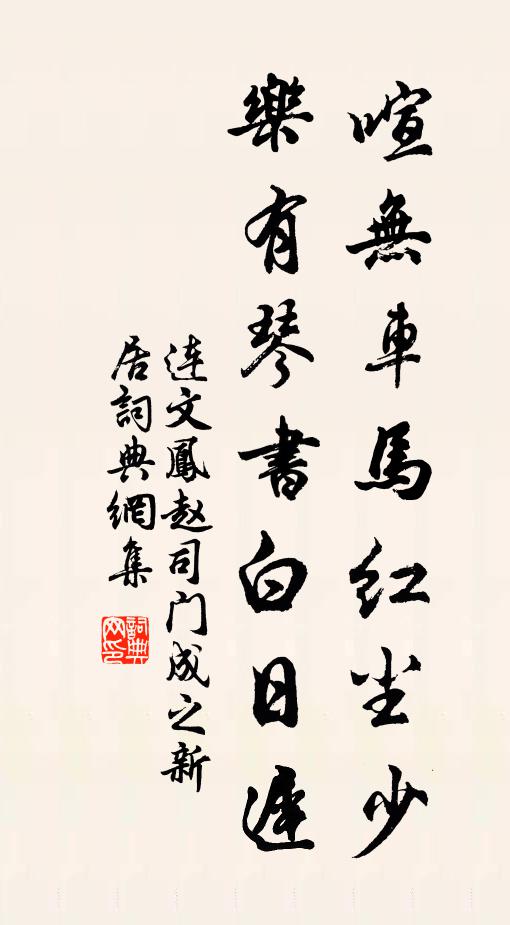 喧無車馬紅尘少
樂有琴書白日遲
连文鳳赵司门成之新
居詞典網集
詞典网印